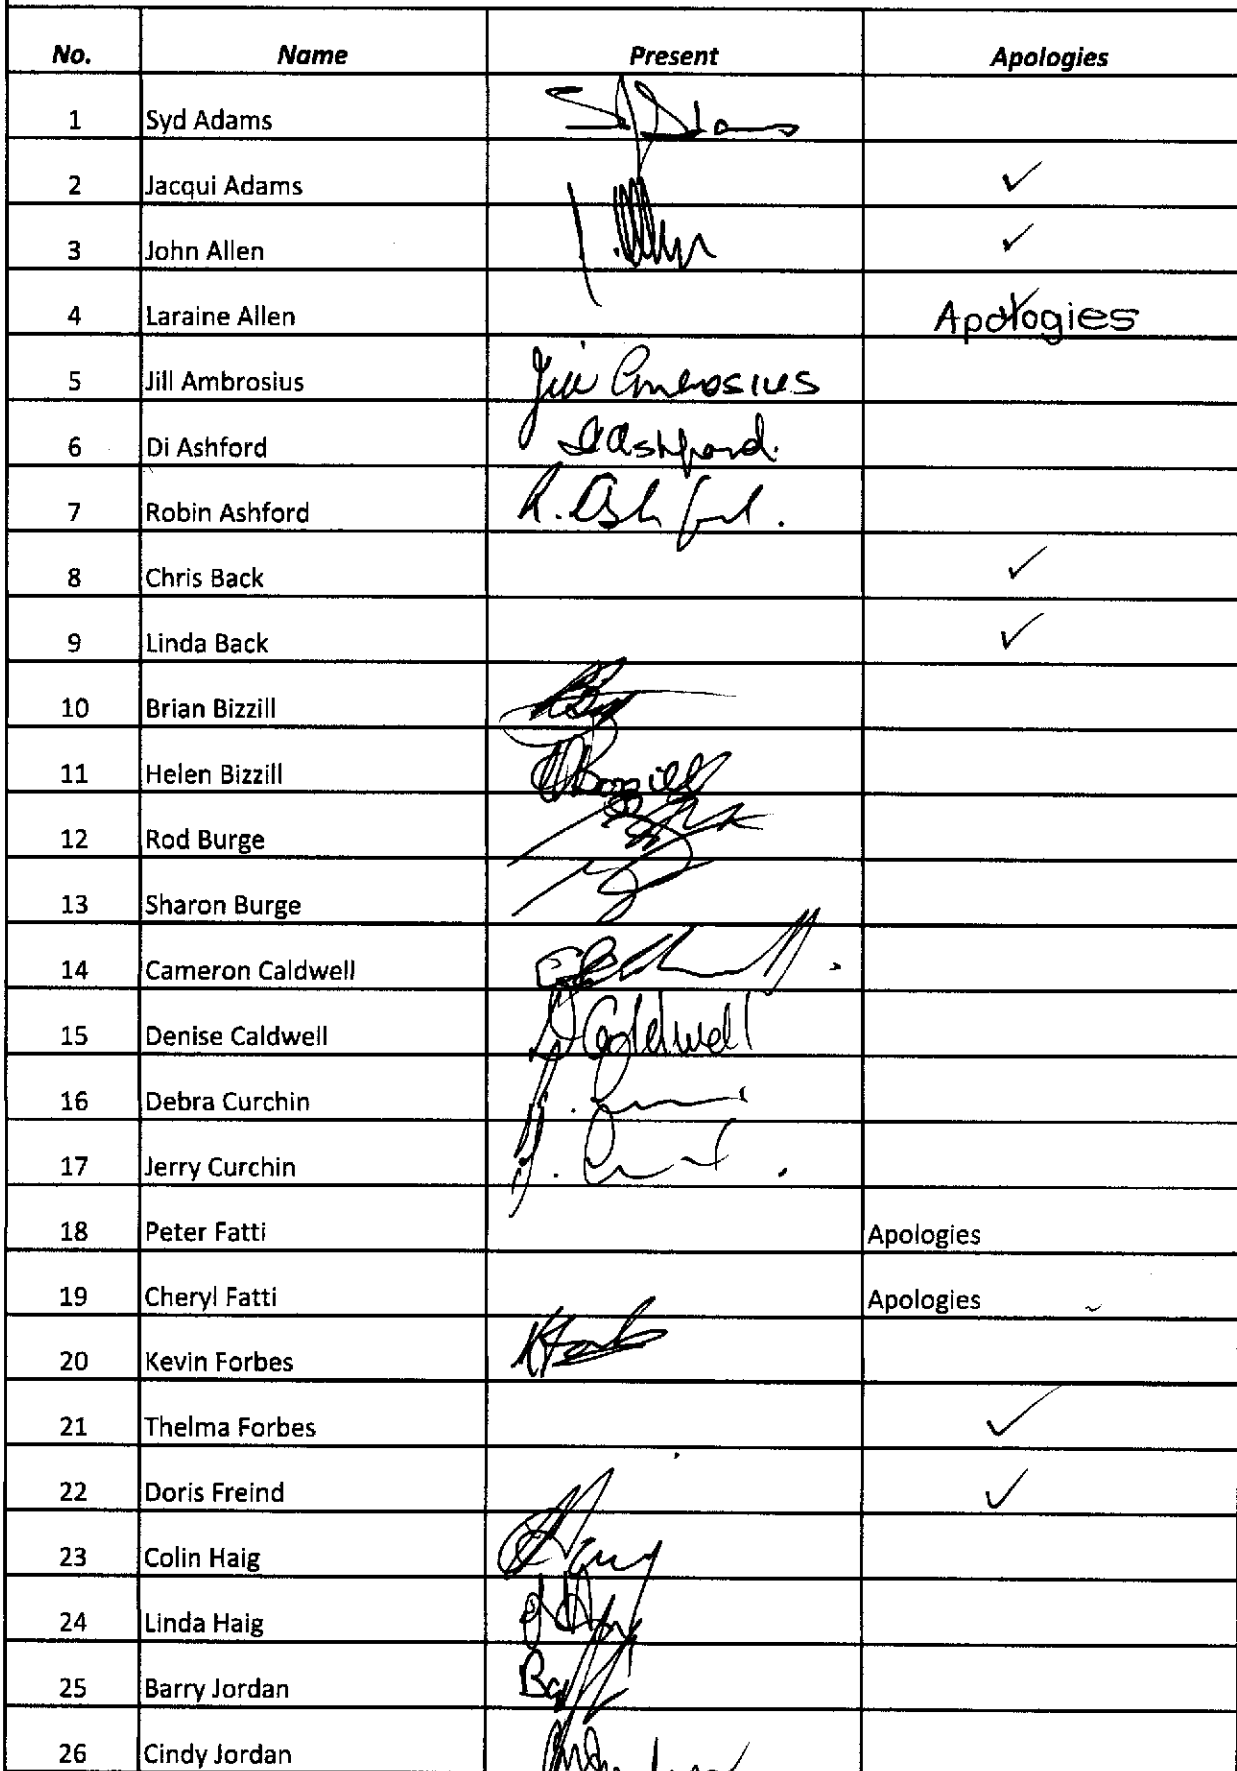 No. Name Present Apologies
1 Syd Adams S Adams
2 Jacqui Adams ✓
3 John Allen J. Allen ✓
4 Laraine Allen Apologies
5 Jill Ambrosius Jill Ambrosius
6 Di Ashford D Ashford.
7 Robin Ashford R. Ashford.
8 Chris Back ✓
9 Linda Back ✓
10 Brian Bizzill
11 Helen Bizzill
12 Rod Burge
13 Sharon Burge
14 Cameron Caldwell
15 Denise Caldwell D Caldwell
16 Debra Curchin
17 Jerry Curchin
18 Peter Fatti Apologies
19 Cheryl Fatti Apologies
20 Kevin Forbes
21 Thelma Forbes ✓
22 Doris Freind ✓
23 Colin Haig
24 Linda Haig
25 Barry Jordan
26 Cindy Jordan